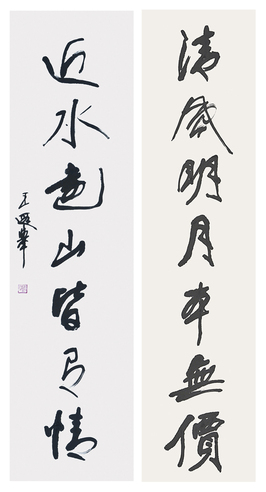 清風明月本無價
近水遠山皆有情
王遐舉